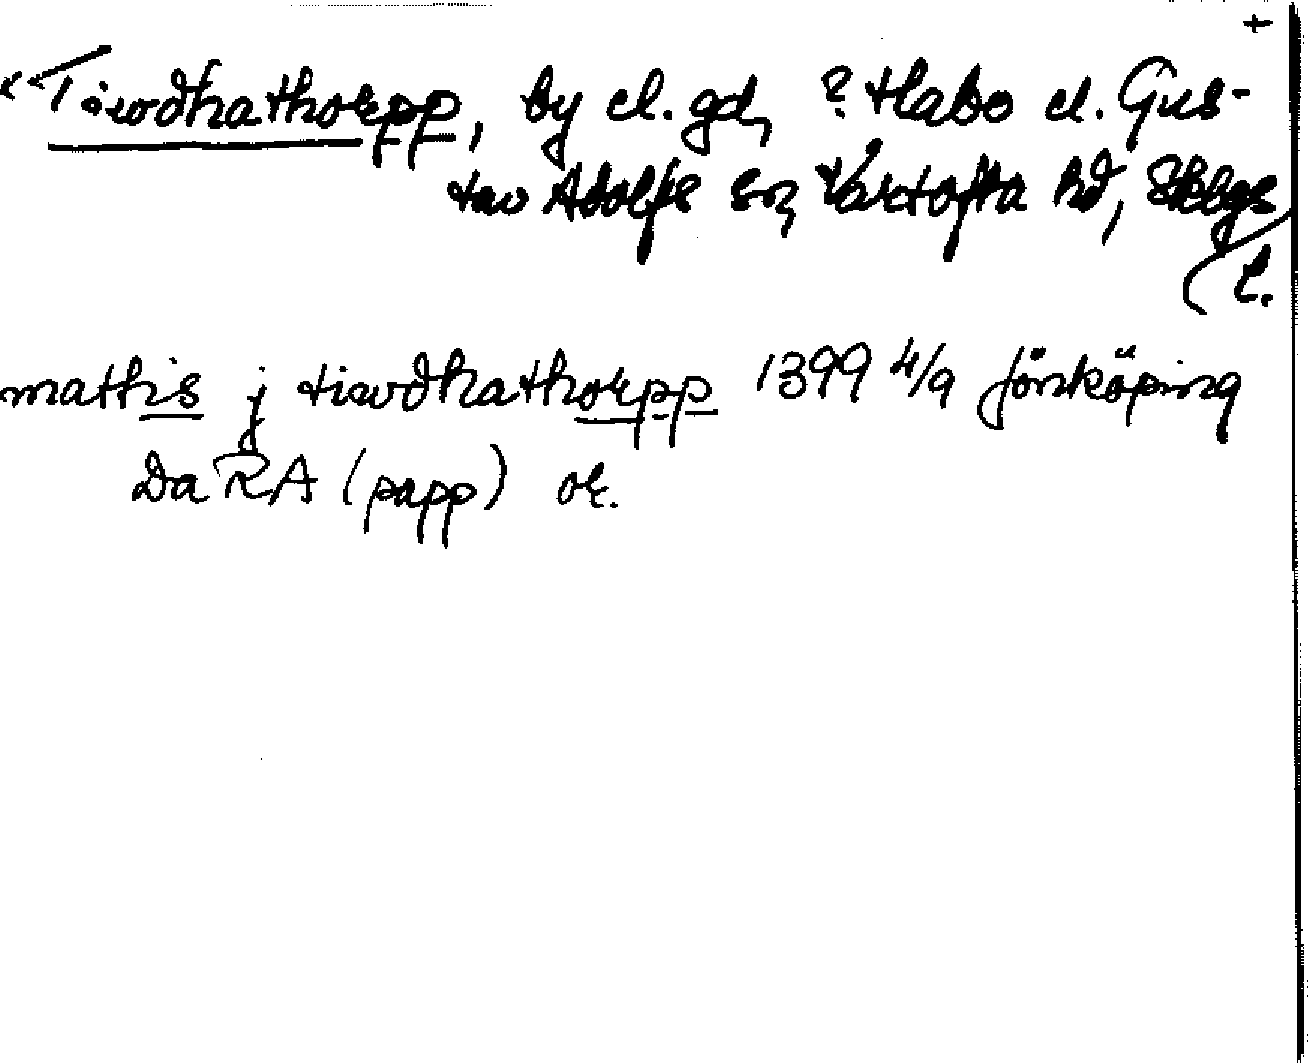 +
"Tiwdhathorpp, by el. gd, ? Habo el. Gus-
tav Adolfs sn, Vartofta hd, Skbgs
l.
mathis j tiwdhathorpp 1399 4/9 Jönköping
Da RA (papp) or.